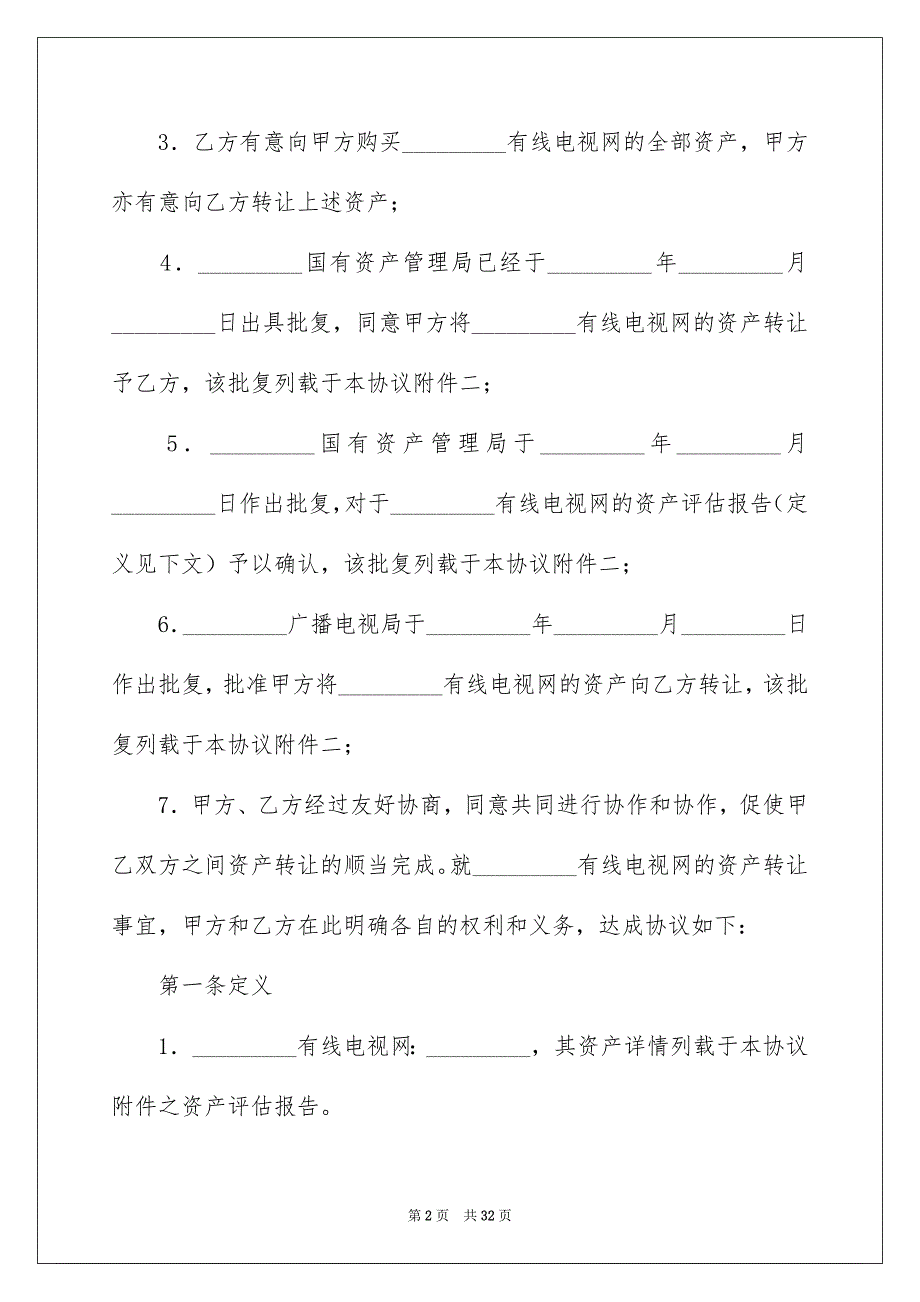 3．乙方有意向甲方购买_________有线电视网的全部资产，甲方
亦有意向乙方转让上述资产；
4．_________国有资产管理局已经于_________年_________月
_________日出具批复，同意甲方将_________有线电视网的资产转让
予乙方，该批复列载于本协议附件二；
5．_________国有资产管理局于_________年_________月
_________日作出批复，对于_________有线电视网的资产评估报告（定
义见下文）予以确认，该批复列载于本协议附件二；
6．_________广播电视局于_________年_________月_________日
作出批复，批准甲方将_________有线电视网的资产向乙方转让，该批
复列载于本协议附件二；
7．甲方、乙方经过友好协商，同意共同进行协作和协作，促使甲
乙双方之间资产转让的顺当完成。就_________有线电视网的资产转让
事宜，甲方和乙方在此明确各自的权利和义务，达成协议如下：
第一条定义
1．_________有线电视网：_________，其资产详情列载于本协议
附件之资产评估报告。
第 2 页 共 32 页